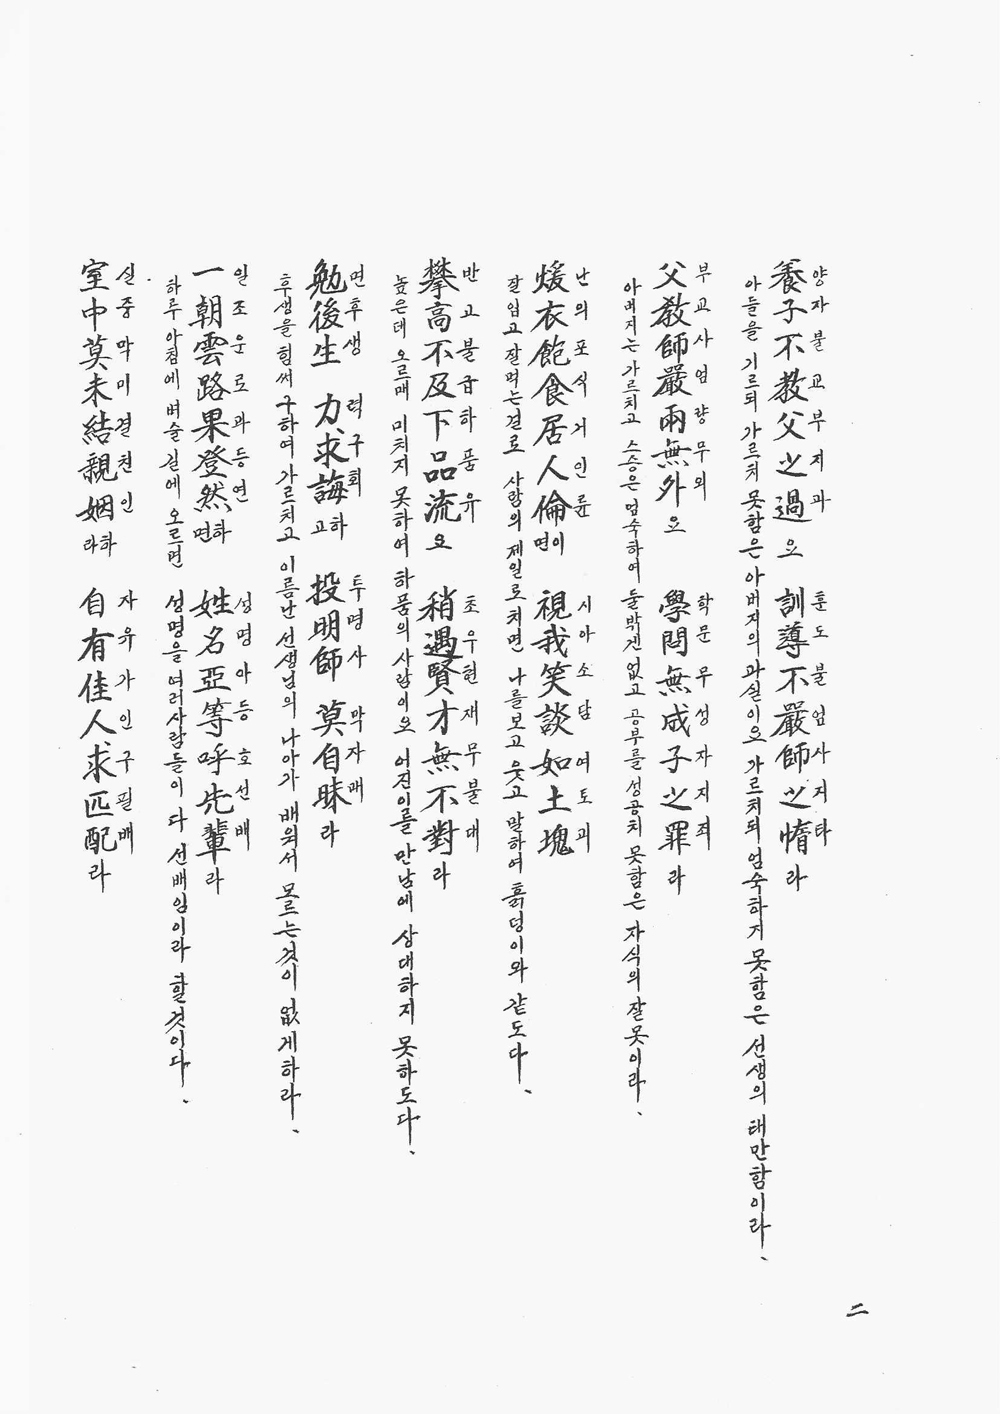 양자불교부지과 훈도불엄사지타
養子不教父之過 으 訓導不嚴師之惰 라
아들을 기르되 가르치 못함은 아버지의 과실이요 가르치되 엄숙하지 못함은 선생의 태만함이라.
부교사엄량무외 학문무성자지죄
父敎師嚴兩無外 으 學問無成子之罪 라
아버지는 가르치고 스승은 엄숙하여 둘밖겐 없고 공부를 성공치 못함은 자식의 잘못이라.
난의포식거인륜 시아소담여토괴
煖衣飽食居人倫 이면 視我笑談如土塊
잘입고 잘먹는걸로 사람의 제일로치면 나를보고 웃고 말하여 흙덩이와 같도다.
반고불급하품유 초우현재무불대
攀高不及下品流 요 稍遇賢才無不對 라
높은데 오르매 미치지 못하여 하품의 사람이요 어진이를 만남에 상대하지 못하도다.
면후생 력구회 투명사 막자매
勉後生 力求誨 하고 投明師 莫自昧 라
후생을 힘써 구하여 가르치고 이름난 선생님의 나아가 배워서 모르는것이 없게하라.
일조운로과등연 성명아등호선배
一朝雲路果登然 하면 姓名亞等呼先輩 라
하루 아침에 벼슬길에 오르면 성명을 여러사람들이 다 선배임이라 할것이다.
실중막미결친인 자유가인구필배
室中莫未結親姻 하라 自有佳人求匹配 라
二